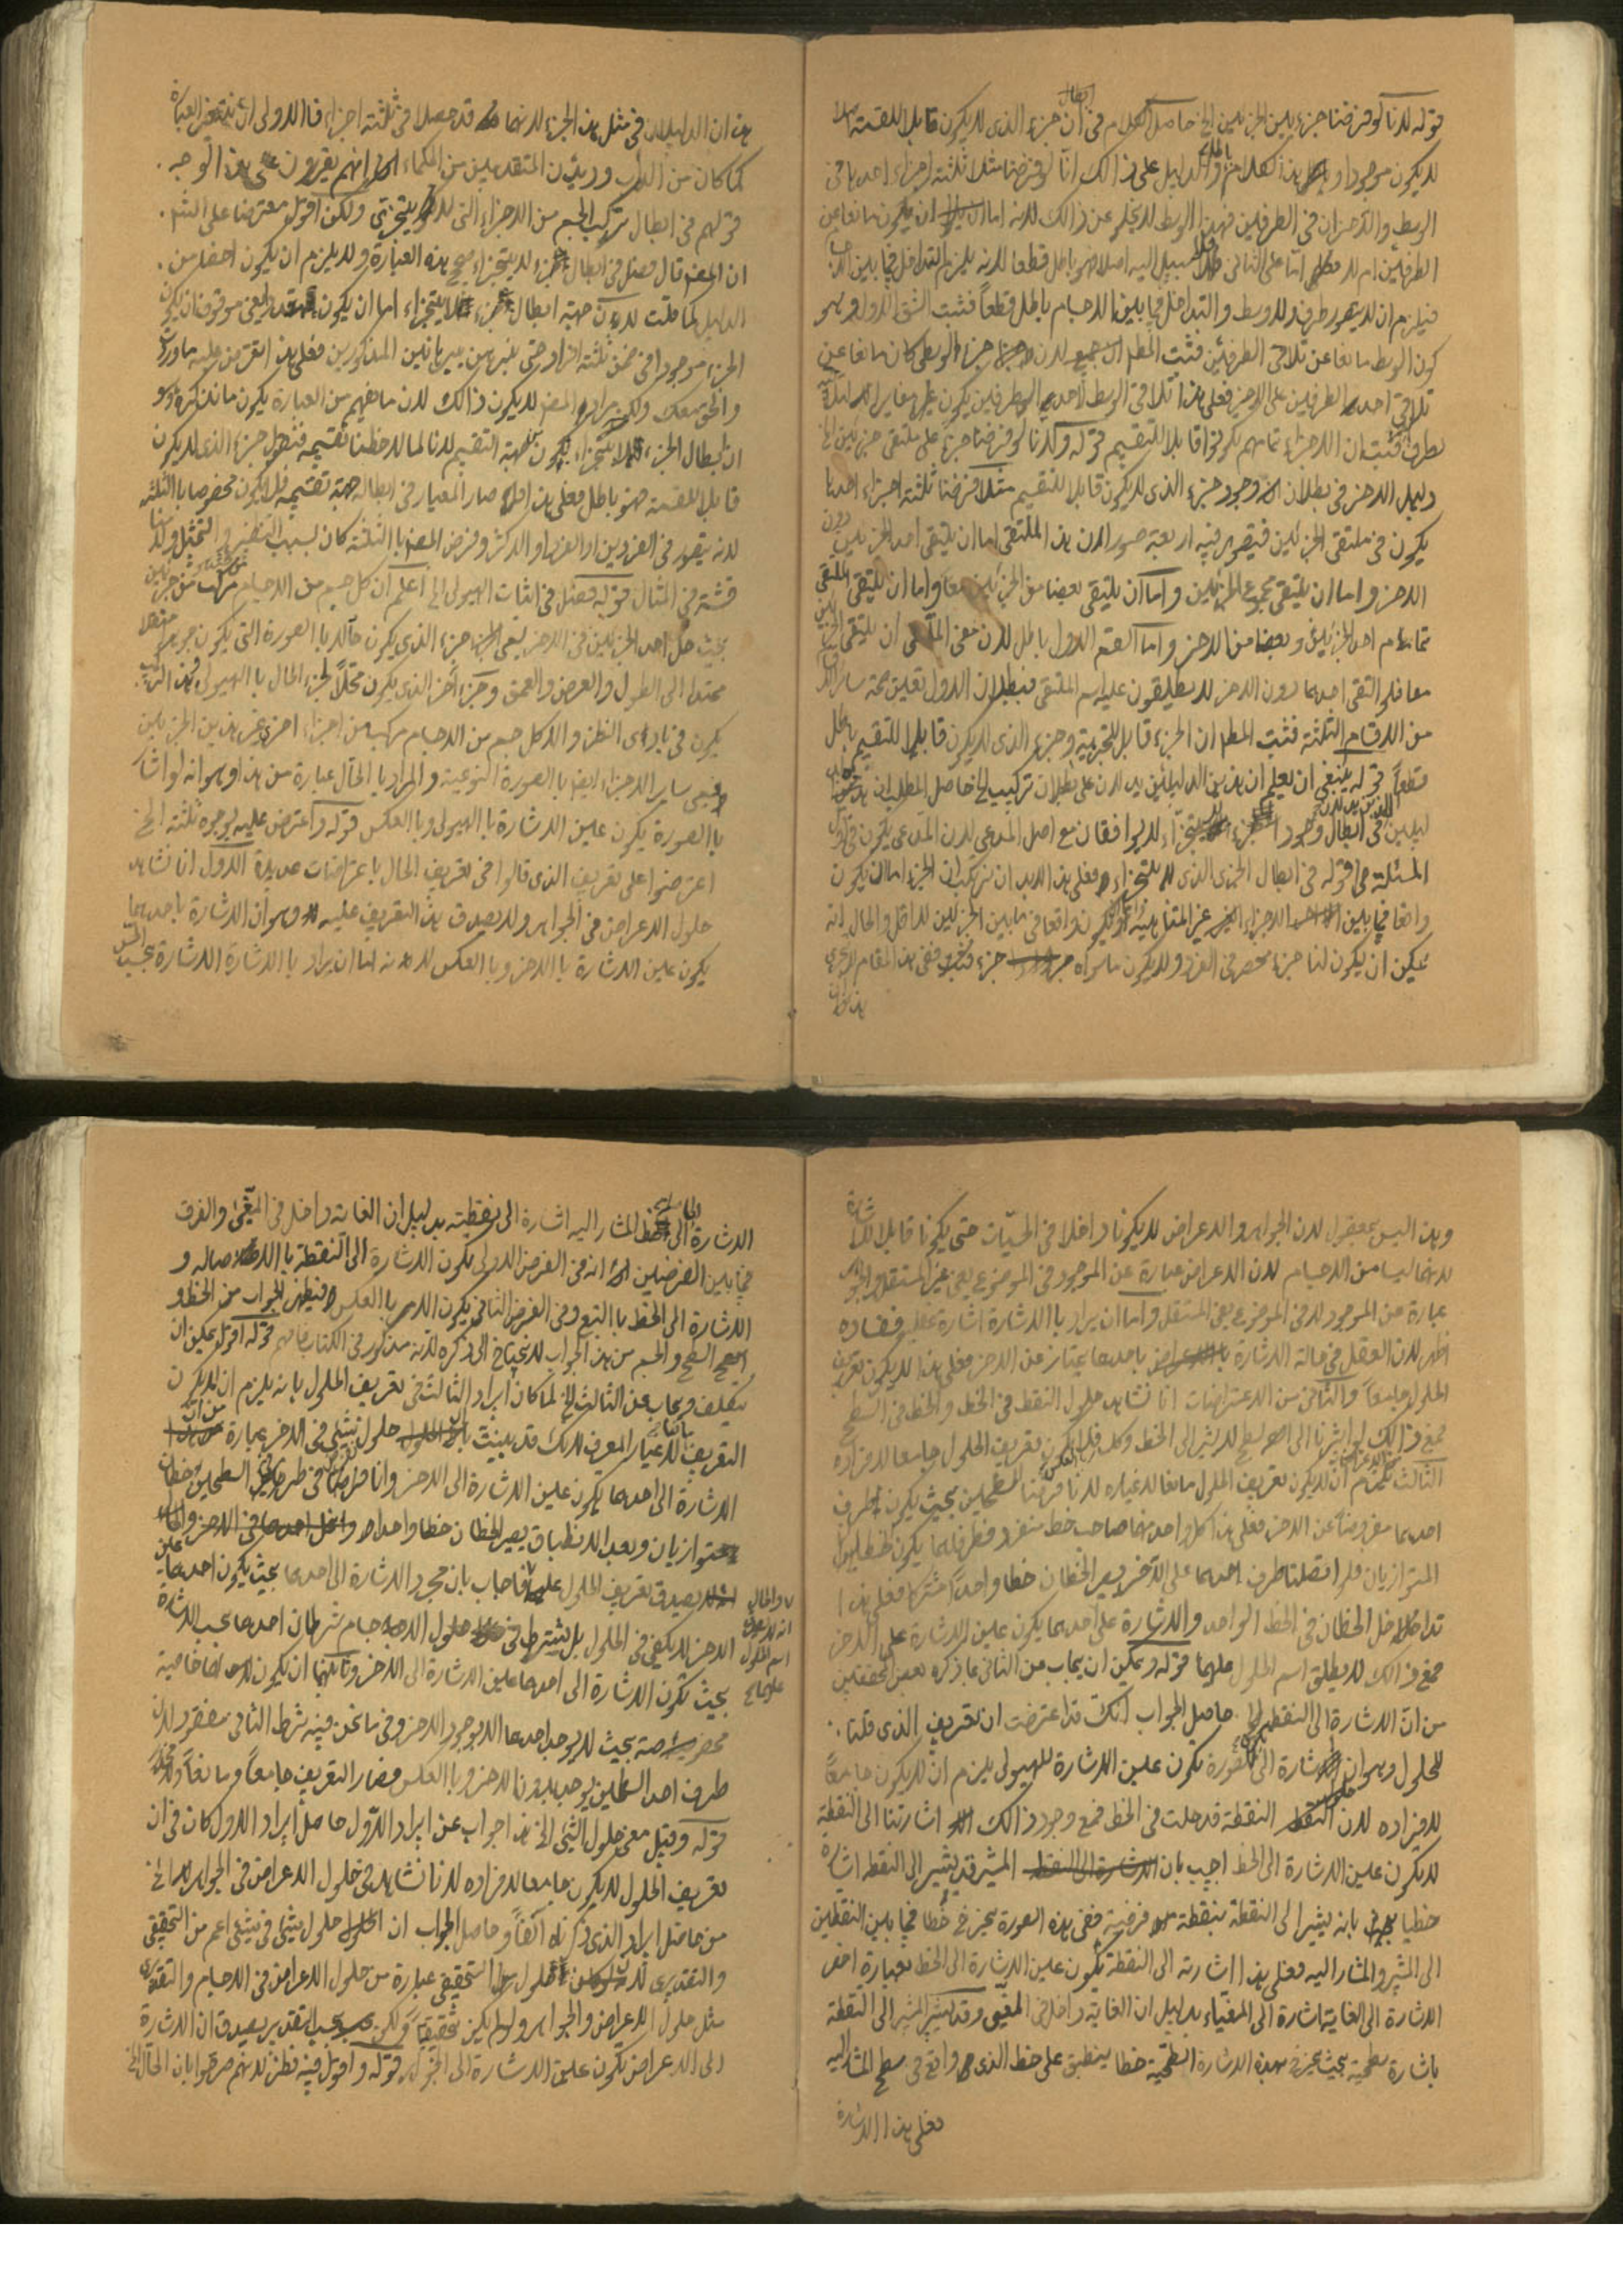 قوله لانا لو فرضنا جزء بين الجزئين الخ حاصل الكلام في ابطال ان جزء الذي لا يكون قابلا للقسمة اصلا
لا يكون موجودا و هذا كلام والدليل على ذالك انا لو فرضنا مثلا ثلثة اجزاء احدها في
الوسط والآخران في الطرفين فهذا الوسط لا يخلو عن ذالك لانه اما ان يكون مانعا عن
الطرفين ام لا اما على الثاني فلا سبيل اليه اصلا فهو باطل قطعا لانه يلزم التداخل فيما بين الاجسام
فيلزم ان لا يصور طرف ولا وسط والتداخل فيما بين الاجسام باطل قطعاً فثبت الشق الاول وهو
كون الوسط مانعا عن تلاقي الطرفين فثبت المطلوب لان جزء الوسطى كان مانعا عن
تلاقي احدى الطرفين على الاخر فعلى هذا تلاقي الوسط لاحدى الطرفين يكون مغايرا
لطرف فثبت ان الاجزاء تمامهم يكونوا قابلا للتقسيم قوله ولانا لو فرضنا جزء على ملتقى جزئين الخ
دليل الاخر في بطلان وجود جزء الذي لا يكون قابلا للتقسيم مثلا فرضنا ثلثة اجزاء احدها
يكون في ملتقى الجزئين فيتصور فيه اربعة صور لان هذا الملتقى اما ان يلتقى احد الجزئين دون
الاخر واما ان يلتقى مجموع الجزئين واما ان يلتقى بعضا من الجزئين معا واما ان يلتقى الملتقى
تمام احد الجزئين وبعضا من الاخر واما القسم الاول باطل لان معنى الملتقى ان يلتقى الجزئين
معا فلو التقى احدهما دون الاخر لا يطلقون عليه اسم الملتقى فبطلان الاول تعين صحة سائر
من الاقسام الثلثة فثبت المط ان الجزء قابل للتجزية وجزء الذي لا يكون قابلا للتقسيم باطل
قطعاً قوله ينبغي ان يعلم ان هذين الدليلين يدلان على بطلان تركيب الخ حاصل المطلب ان
ليلين في ابطال وجود الجزء لا يتجزاء لا يوافقان مع اصل المدعى لان المدعى يكون في
المسئلة هي قوله في ابطال الجزء الذي لا يتجزاء فعلى هذا لابد ان تركبات الجزء اما ان يكون
واقعا فيما بين الاجزاء غير المتناهية او يكون واقعا في ما بين الجزئين لا اقل والحال انه
يمكن ان يكون لنا جزء منحصر في الفرد ولا يكون ما سواه جزء ففي هذا المقام لا يجرى
هذان
هذان الدليلان في مثل هذا الجزء لانهما قد حصلا في ثلثة اجزاء فالاولى ان تغير العبارة
كما كان من الدأب ورئين المتقدمين من الحكماء انهم يقررون على هذا الوجه .
قولهم في ابطال تركب الجسم من الاجزاء التى لا يتجزى ولكن اقول معترضا على الشم .
ان المصنف قال فصل في ابطال جزء لا يتجزاء صح هذه العبارة ولا يلزم ان يكون اخفا من .
الدليل كما قلت لان جهة ابطال جزء لا يتجزاء اما ان يكون
الجزء موجودا في ضمن ثلثة افراد حتى
والحق معك ولكن مراد المصنف لا يكون ذالك لان ما فهم من العبارة يكون ما نذكره وهو
ان ابطال الجزء لا يتجزاء يكون من جهة التقسيم لانا لما لاحظنا تقسيمه فنقول جزء الذي لا يكون
قابلا للقسمة فهو باطل فعلى هذا صار المعيار في ابطاله جهة تقسيمه فلا يكون مخصوصا بالثلثة
لانه يتصور في الفردين او الفرد او الاكثر وفرض المصنف بالثلثة كان بسبب التنظير والتمثل ولا
قشة في المثال قوله فصل في اثبات الهيولى الخ اعلم ان كل جسم من الاجسام مركب من جزئين
بحيث حل احد الجزئين في الاخر يعنى جزء الذي يكون حالا بالصورة التى يكون جوهرا متصلا
ممتدا الى الطول والعرض والعمق وجزء آخر الذي يكون محلاً لجزء الحال بالهيولى وهذا التركيب
يكون في بادى النظر والا كل جسم من الاجسام مركب من اجزاء اخرى غير هذين الجزئين
يعنى سائر الاجزاء ايضا بالصورة النوعية والمراد بالحال عبارة من هذا وهو انه لو اشار
بالصورة يكون عين الاشارة بالهيولى وبالعكس قوله واعترض عليه بوجوه ثلثة الخ
اعترضوا على تعريف الذي قالوا في تعريف الحال باعتراضات عديدة الاول انا نشاهد
حلول الاعراض في الجواهر ولا يصدق هذا التعريف عليه وهو ان الاشارة باحدهما
يكون عين الاشارة بالاخر وبالعكس لانه اما ان يراد بالاشارة الاشارة بحسب الحس
وهذا ليس بمعقول لان الجواهر والاعراض لا يكونا داخلا في الحسيّات حتى يكونا قابلا للاشارة
لانهما ليسا من الاجسام لان الاعراض عبارة عن الموجود في الموضوع يعنى غير المستقل والجواهر
عبارة من الموجود لا في الموضوع يعنى المستقل واما ان يراد بالاشارة اشارة عقلية ففساده
اظهر لان العقل في حالة الاشارة باحدهما يمتاز عن الاخر فعلى هذا لا يكون تعريف
الحلول جامعاً والثاني من الاعتراضات انا نشاهد حلول النقط في الخط والخط في السطح
فمع ذالك لو اشرنا الى السطح لا يشير الى الخط وكك فلا يكون تعريف الحلول جامعا لافراده
الثالث يلزم ان لا يكون تعريف الحلول مانعا لاغياره لانا فرضنا السطحين بحيث يكون طرف
احدهما مفروضاً عن الاخر فعلى هذا كل واحد منهما صاحب خط منفرد فطرفاهما يكون خطين
المتوازيان فلو اتصلنا طرف احدهما على الآخر يصير الخطان خطا واحداً مشتركا فعلى هذا
تداخل الخطان في الخط الواحد والاشارة على احدهما يكون عين الاشارة على الاخر
فمع ذالك لا يطلق اسم الحلول عليهما قوله ويمكن ان يجاب من الثاني بما ذكره بعض المحققين
من انّ الاشارة الى النقطة الخ حاصل الجواب انك قد اعترضت ان تعريف الذي قلنا .
للحلول وهو ان الاشارة الى الصورة تكون عين الاشارة للهيولى يلزم ان لا يكون جامعاً
لافراده لان النقطة قد حلت في الخط فمع وجود ذالك اشارتنا الى النقطة
لا يكون عين الاشارة الى الخط اجيب بان المشير قد يشير الى النقطة اشارة
خطيا بانه يشير الى النقطة بنقطة فرضية ففي هذه الصورة يخرج خطا فيما بين النقطتين
الى المشير والمشار اليه فعلى هذا اشارته الى النقطة يكون عين الاشارة الى الخط بعبارة اخرى
الاشارة الى الغاية اشارة الى المغياء بدليل ان الغاية داخل في المغيّى وقد يشير المشير الى النقطة
باشارة سطحية بحيث يخرج بهذه الاشارة السطحيّة خطا ينطبق على خط الذي واقع في سطح المشار اليه
فعلى هذا الاشارة
الاشارة الى الخط المشار اليه اشارة الى نقطته بدليل ان الغاية داخل في المغيّى والفرق
فيما بين الفرضين انه في الفرض الاولى يكون الاشارة الى النقطة بالاصاله و
الاشارة الى الخط بالتبع وفي الفرض الثاني يكون الامر بالعكس فيظهر الجواب من الخط و
السطح والجسم من هذا الجواب لا نحتاج الى ذكره لانه مذكور في الكتاب فافهم قوله اقول يمكن ان
يتكلف ويجاب عن الثالث الخ لما كان ايراد الثالث في تعريف الحلول بانه يلزم ان لا يكون
التعريف مانعا لاغيار المعرف لانك قد بينت بان حلول شئ في الاخر عبارة من ان
الاشارة الى احدهما يكون عين الاشارة الى الاخر وانا فرضنا في طرفى السطحين خطان
متوازيان وبعد الانطباق يصير الخطان خطا واحدا
لا يصدق تعريف الحلول عليهما فاجاب بان مجرد الاشارة الى احدهما بحيث يكون احدهما عين
الاخر لا يكفى في الحلول بل يشترط في حلول الاجسام شرطان احدهما بحسب الاشارة
بحيث تكون الاشارة الى احدهما عين الاشارة الى الاخر وثانيهما ان يكون لاحدهما خاصية
مخصوصة بحيث لا يوجد احدهما الا بوجود الاخر وفي ما نحن فيه شرط الثاني مفقود لان
طرف احد السطحين يوجد بدون الاخر وبالعكس فصار التعريف جامعاً ومانعاً
قوله وقيل معنى حلول الشئ الخ هذا جواب عن ايراد الاوّل حاصل ايراد الاول كان في ان
تعريف الحلول لا يكون جامعا لافراده لانا نشاهد في حلول الاعراض في الجواهر الى اخر
من حاصل ايراد الذي ذكرناه آنفاً وحاصل الجواب ان حلول شئ في شئ اعم من التحقيقى
والتقديرى لان حلول التحقيقى عبارة من حلول الاعراض في الاجسام والتقديرى
مثل حلول الاعراض والجواهر ولو لم يكن تحقيقيّا ولكن بحسب التقدير يصدق ان الاشارة
الى الاعراض يكون عين الاشارة الى الجواهر قوله واقول فيه نظر لانهم صرحوا بان الحال الخ
والحال
انه
اسم الحلول
عليهما صح